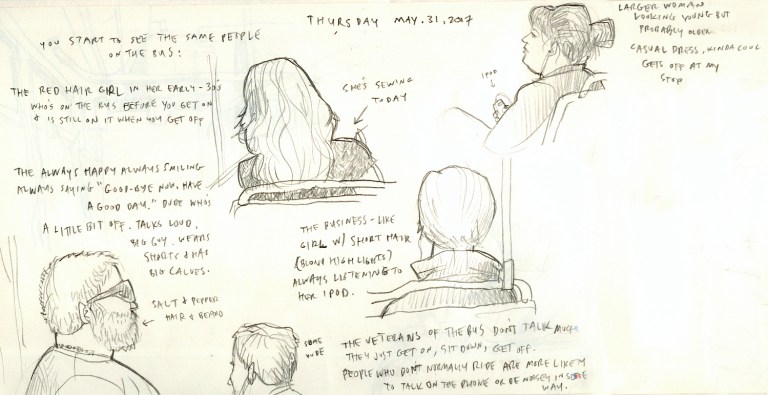 THURSDAY MAY.31,2007
YOU START TO SEE THE SAME PEOPLE
ON THE BUS:
THE RED HAIR GIRL IN HER EARLY-30'S
WHO'S ON THE BUS BEFORE YOU GET ON
& IS STILL ON IT WHEN YOU GET OFF
SHE'S SEWING
TODAY
IPOD
LARGER WOMAN
LOOKING YOUNG BUT
PROBABLY OLDER.
CASUAL DRESS, KINDA COOL
GETS OFF AT MY
STOP
THE ALWAYS HAPPY ALWAYS SMILING
ALWAYS SAYING "GOOD-BYE NOW, HAVE
A GOOD DAY." DUDE WHO'S
A LITTLE BIT OFF. TALKS LOUD,
BIG GUY. WEARS
SHORTS & HAS
BIG CALVES.
SALT & PEPPER
HAIR & BEARD
THE BUSINESS-LIKE
GIRL W/ SHORT HAIR
(BLOND HIGHLIGHTS)
ALWAYS LISTENING TO
HER IPOD.
SOME
DUDE
THE VETERANS OF THE BUS DON'T TALK MUCH.
THEY JUST GET ON, SIT DOWN, GET OFF.
PEOPLE WHO DON'T NORMALLY RIDE ARE MORE LIKELY
TO TALK ON THE PHONE OR BE NOISEY IN SOME
WAY.